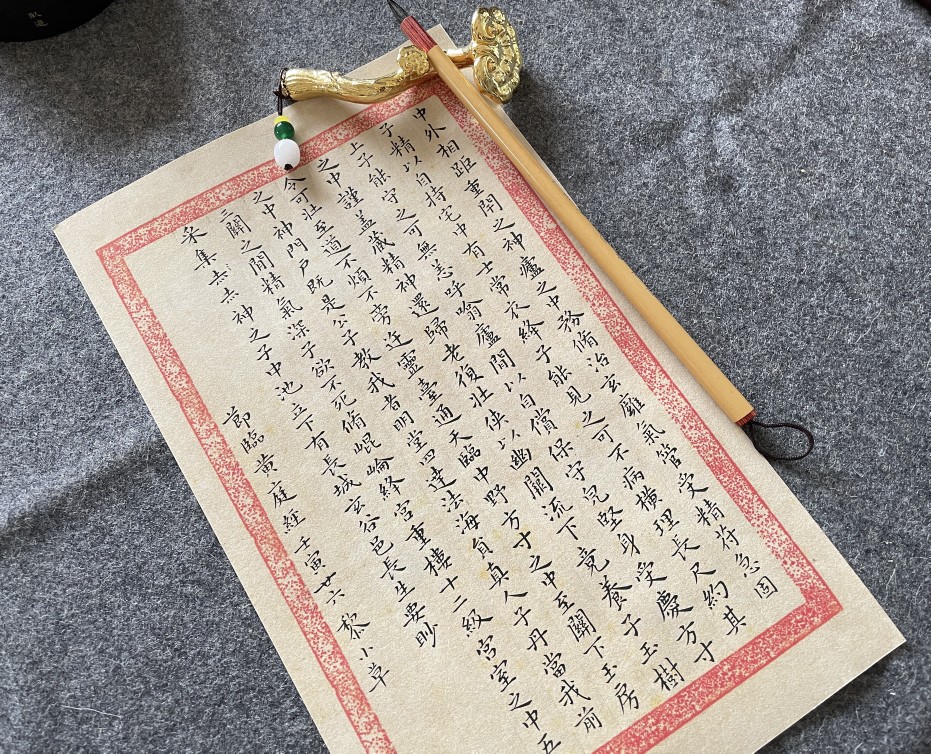 中外相距重閉之神廬之中務脩治玄膺氣管受精符急固
子精以自持宅中有士常衣絳子能見之可不病橫理長尺約其
上子能守之可無恙呼噏廬間以自償保守完堅身受慶方寸
之中謹蓋藏精神還歸老復壯俠以幽闕流下竟養子玉樹
令可壯至道不煩不旁迕靈臺通天臨中野方寸之中至關下玉房
之中神門戶既是公子教我者明堂四達法海員真人子丹當我前
三關之間精氣深子欲不死脩崐崘絳宮重樓十二級宮室之中五
采集赤赤神之子中池立下有長城玄谷邑長生要眇
節臨黃庭經壬寅廿六 黎小草